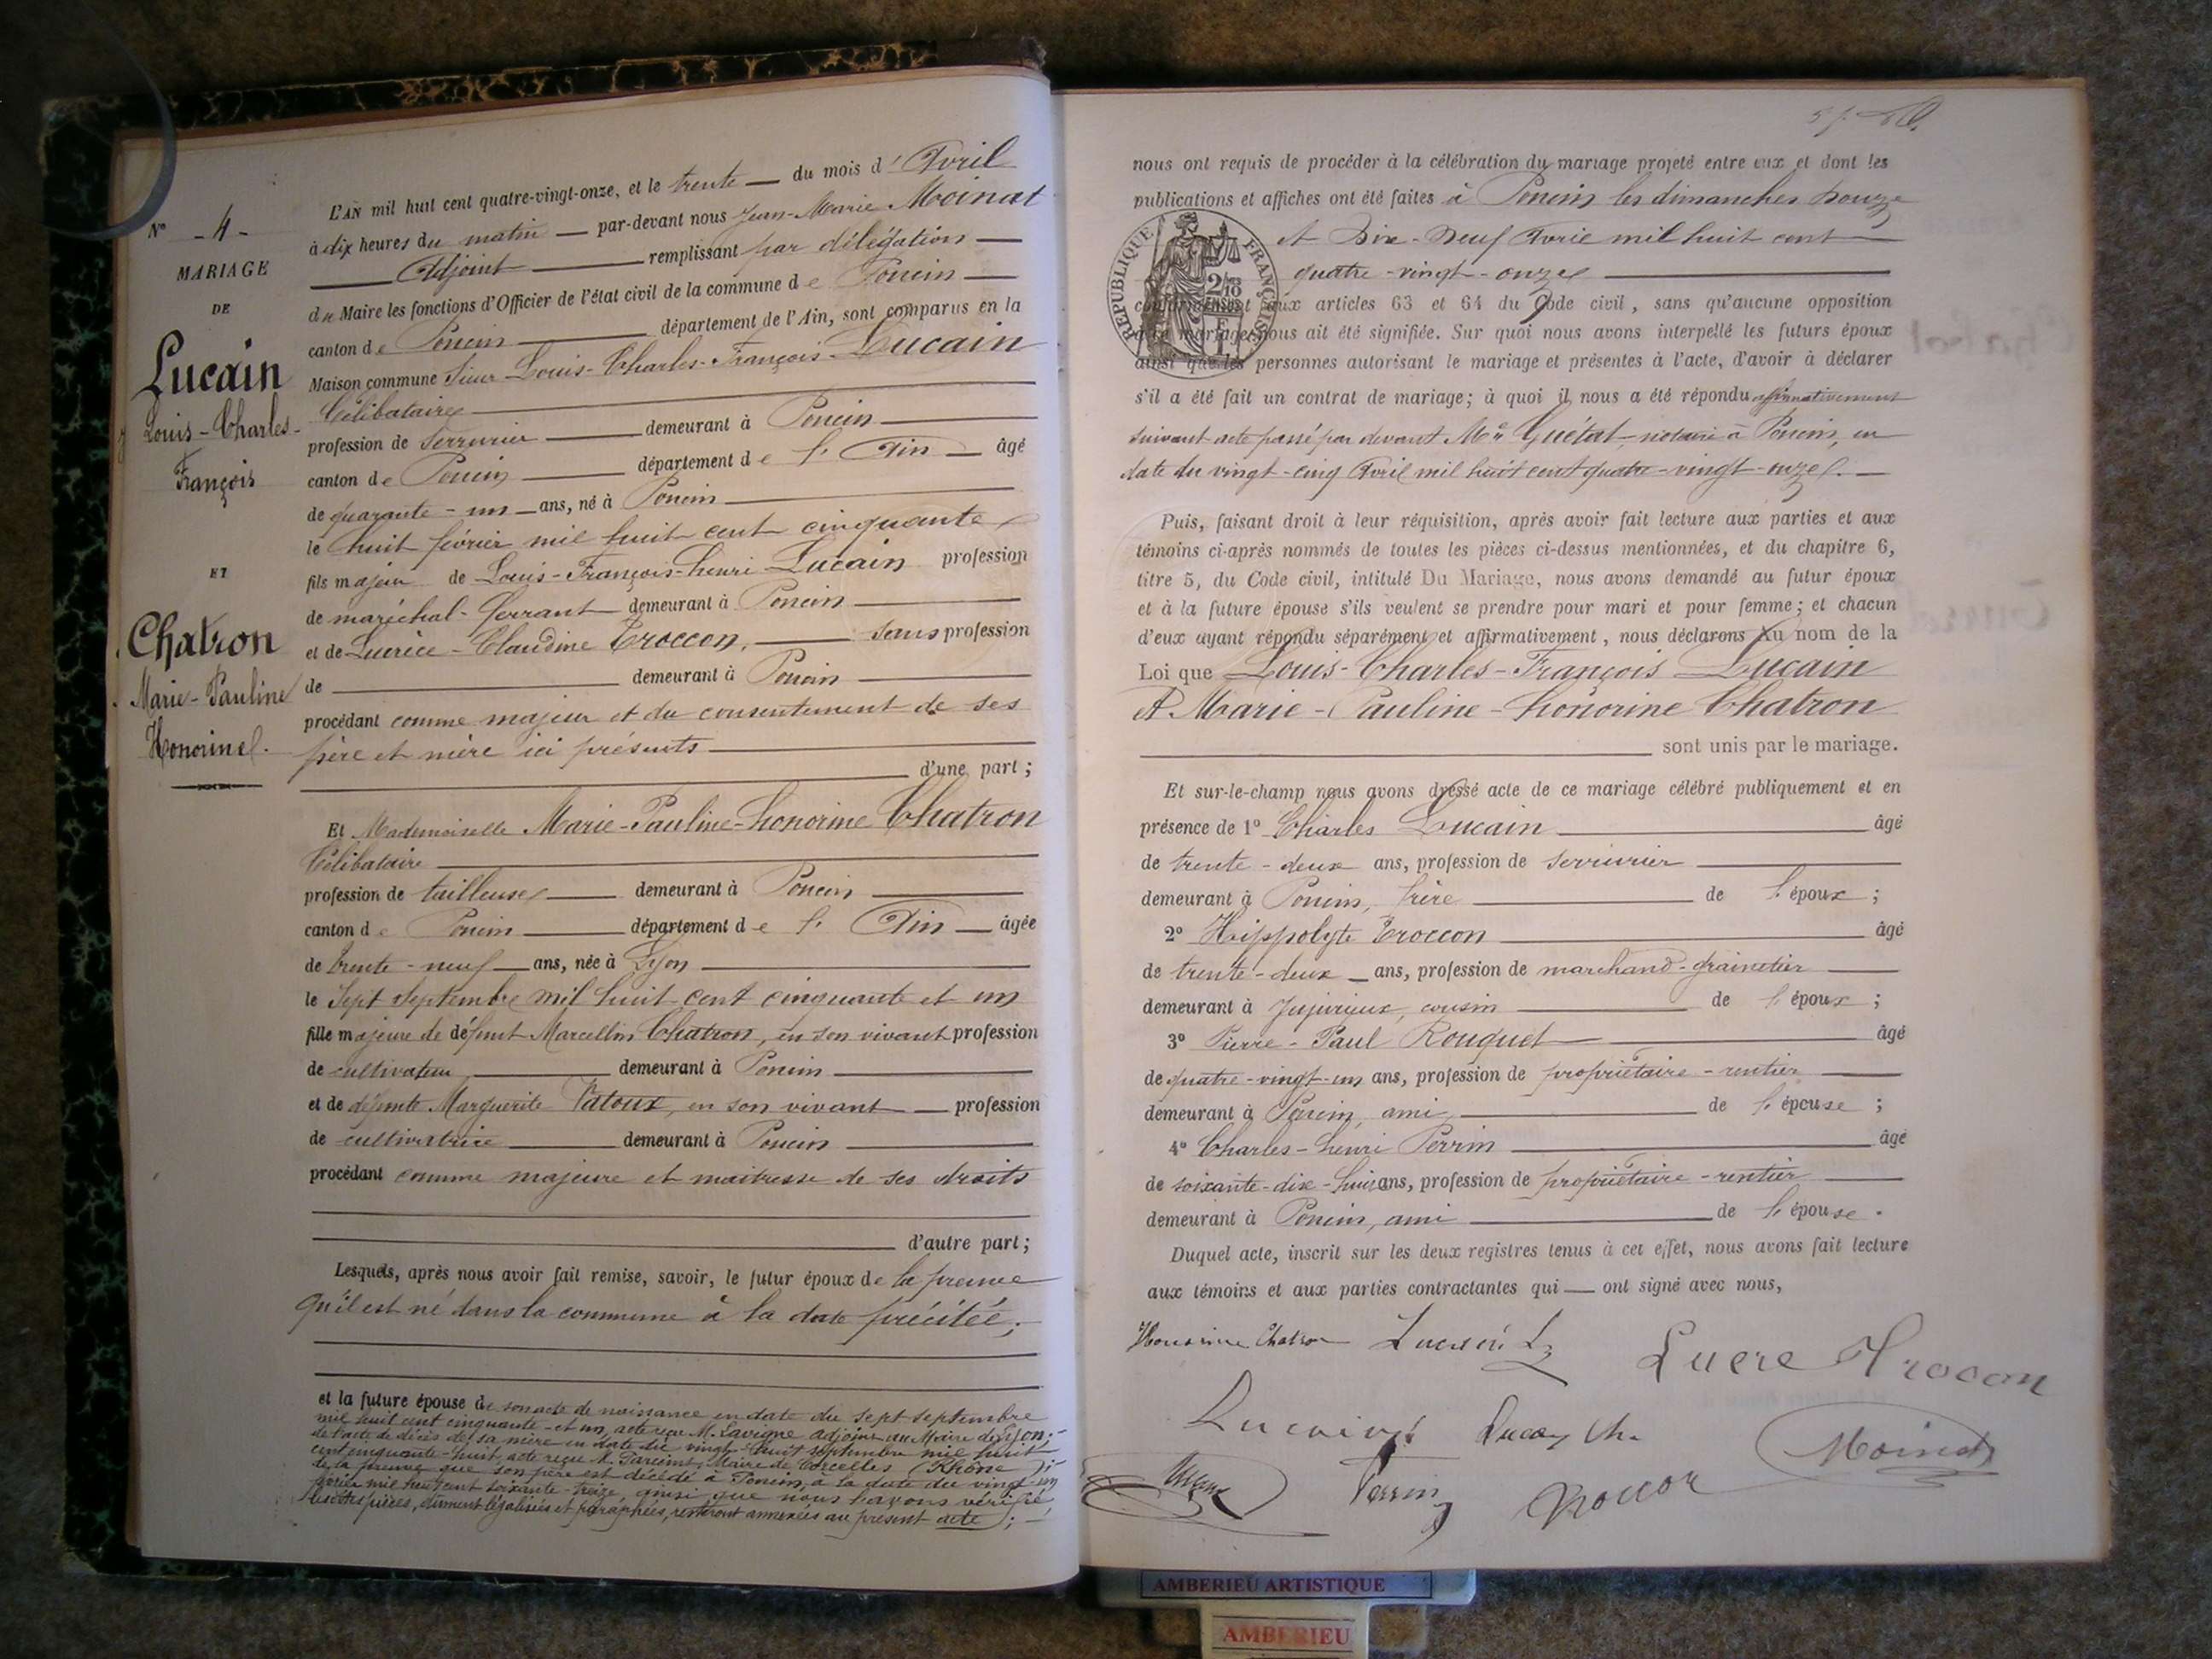 N° - 4 -
MARIAGE
DE
Lucain
Louis-Charles-
François
ET
Chatron
Marie-Pauline
Honorine.
L'AN mil huit cent quatre-vingt-onze, et le trente — du mois d'Avril
à dix heures du matin — par-devant nous Jean-Marie Moinat
Adjoint remplissant par délégation
du Maire les fonctions d'Officier de l'état civil de la commune de Poncin
canton de Poncin département de l'Ain, sont comparus en la
Maison commune Sieur Louis-Charles-François Lucain
Célibataire
profession de Serrurier demeurant à Poncin
canton de Poncin département de l'Ain âgé
de quarante-un ans, né à Poncin
le huit février mil huit cent cinquante
fils majeur de Louis-François-henri Lucain profession
de maréchal-ferrant demeurant à Poncin
et de Lucrèce-Claudine Troccon, sans profession
de demeurant à Poncin
procédant comme majeur et du consentement de ses
père et mère ici présents
d'une part ;
Et Mademoiselle Marie-Pauline-honorine Chatron
Célibataire
profession de tailleuse demeurant à Poncin
canton de Poncin département de l'Ain âgée
de trente-neuf ans, née à Lyon
le Sept Septembre mil huit cent cinquante et un
fille majeure de défunt Marcellin Chatron, en son vivant profession
de cultivateur demeurant à Poncin
et de défunte Marguerite Vatoux, en son vivant profession
de cultivatrice demeurant à Poncin
procédant comme majeure et maitresse de ses droits
d'autre part ;
Lesquels, après nous avoir fait remise, savoir, le futur époux de la preuve
qu'il est né dans la commune à la date précitée ;
et la future épouse de son acte de naissance en date du sept septembre
mil huit cent cinquante-et un, acte reçu M. Lavigne adjoint au Maire de Lyon ;
de l'acte de décès de sa mère en date du vingt-huit septembre mil huit
cent cinquante-huit, acte reçu M. Maire de Corcelles (Rhône) ;
de la preuve que son père est décédé à Poncin, à la date du vingt-un
février mil huit cent soixante-treize, ainsi que nous l'avons vérifié,
lesdites pièces, dûment légalisées et paraphées, resteront annexées au présent acte ;
nous ont requis de procéder à la célébration du mariage projeté entre eux et dont les
publications et affiches ont été faites à Poncin les dimanches douze
et Dix-Neuf Avril mil huit cent
quatre-vingt-onze
RÉPUBLIQUE FRANÇAISE
conformément aux articles 63 et 64 du Code civil, sans qu'aucune opposition
au mariage nous ait été signifiée. Sur quoi nous avons interpellé les futurs époux
ainsi que les personnes autorisant le mariage et présentes à l'acte, d'avoir à déclarer
s'il a été fait un contrat de mariage ; à quoi il nous a été répondu affirmativement
suivant acte passé par devant Me Guétat, notaire à Poncin, en
date du vingt-cinq Avril mil huit cent quatre-vingt-onze.
Puis, faisant droit à leur réquisition, après avoir fait lecture aux parties et aux
témoins ci-après nommés de toutes les pièces ci-dessus mentionnées, et du chapitre 6,
titre 5, du Code civil, intitulé Du Mariage, nous avons demandé au futur époux
et à la future épouse s'ils veulent se prendre pour mari et pour femme ; et chacun
d'eux ayant répondu séparément et affirmativement, nous déclarons au nom de la
Loi que Louis-Charles-François Lucain
et Marie-Pauline-honorine Chatron
sont unis par le mariage.
Et sur-le-champ nous avons dressé acte de ce mariage célébré publiquement et en
présence de 1° Charles Lucain âgé
de trente-deux ans, profession de serrurier
demeurant à Poncin, frère de l'époux ;
2° Hippolyte Troccon âgé
de trente-deux ans, profession de marchand-grainetier
demeurant à Jujurieux, cousin de l'époux ;
3° Pierre-Paul Rouquet âgé
de quatre-vingt-un ans, profession de propriétaire-rentier
demeurant à Poncin, ami de l'épouse ;
4° Charles-henri Perrin âgé
de soixante-dix-huit ans, profession de propriétaire-rentier
demeurant à Poncin, ami de l'épouse.
Duquel acte, inscrit sur les deux registres tenus à cet effet, nous avons fait lecture
aux témoins et aux parties contractantes qui — ont signé avec nous,
Honorine Chatron Lucain L
Lucre Trocon
Lucain Lucain Ch.
Moinat
Perrin Troccon
AMBERIEU ARTISTIQUE
AMBERIEU